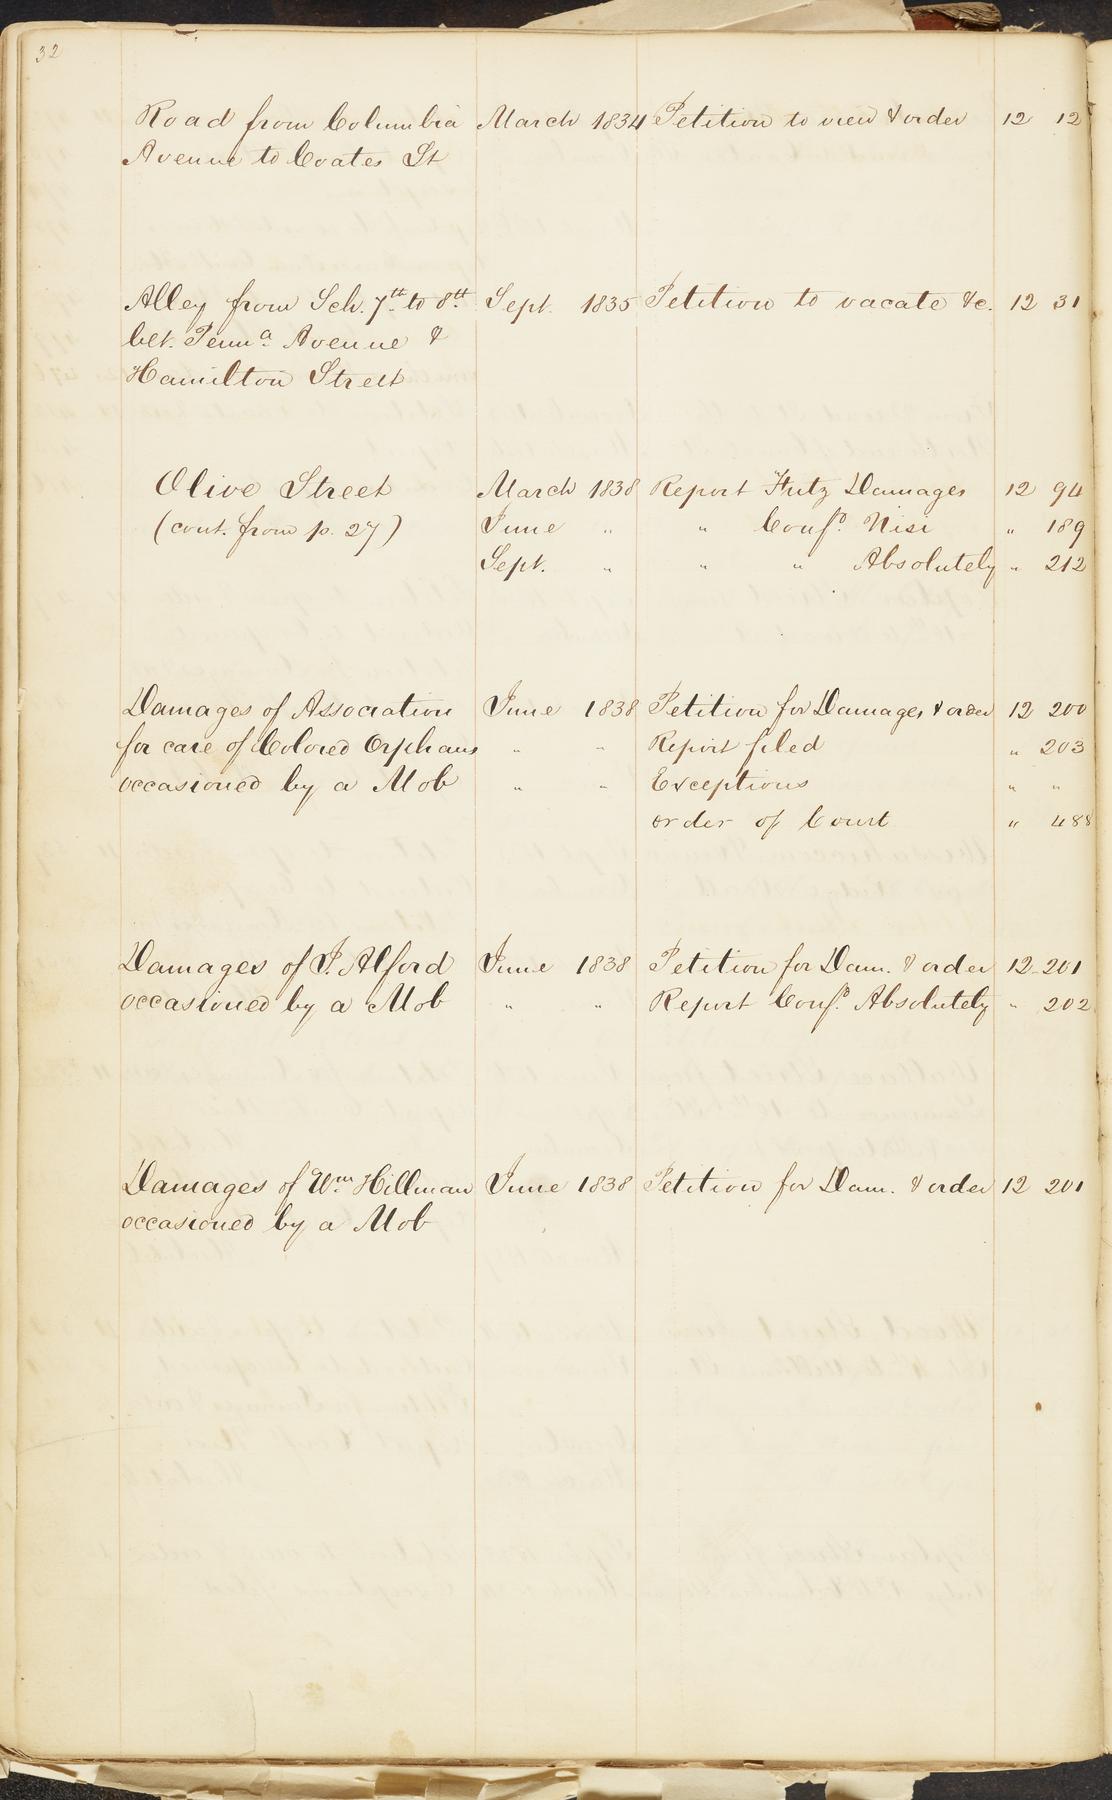 32
Road from Columbia March 1834 Petition to view & order 12 12
Avenue to Coates St
Alley from Sch. 7th to 8th Sept. 1835 Petition to vacate &c. 12 31
bet. Penna Avenue &
Hamilton Street
Olive Street March 1838 Report Fritz Damages 12 94
(cont. from p. 27) June " " Confd. Nisi " 189
Sept. " " " Absolutely " 212
Damages of Association June 1838 Petition for Damages & order 12 200
for care of Colored Orphans " " Report filed " 203
occasioned by a Mob " " Exceptions " "
order of Court " 488
Damages of J. Alford June 1838 Petition for Dam. & order 12 201
occasioned by a Mob " " Report Confd. Absolutely " 202
Damages of Wm Hillman June 1838 Petition for Dam. & order 12 201
occasioned by a Mob